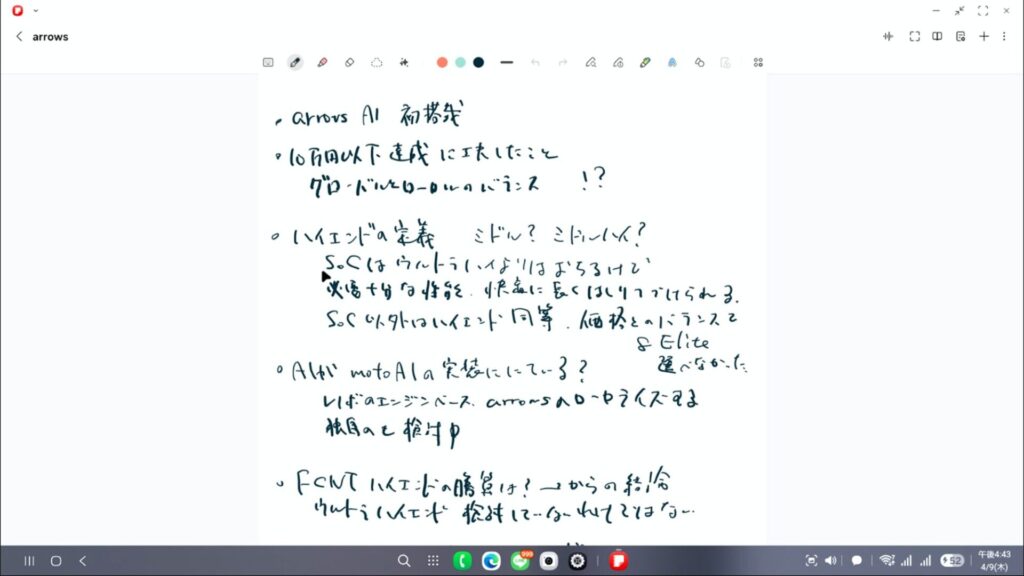 arrows
・arrows AI 初搭載
・10万円以下達成に工夫したこと
グローバルとローカルのバランス !?
・ハイエンドの定義 ミドル? ミドルハイ?
SoCはウルトラハイよりはおちるけど
必要十分な性能. 快適に長くはしりつづけられる.
SoC以外はハイエンド同等. 価格とのバランスで
8 Elite
選べなかった
・AIが motoAIの実装ににている?
レノボのエンジンベース. arrowsへローカライズする
独自のも検討中
・FCNT ハイエンドの勝算は? →からの結論
ウルトラハイエンド 検討していないわけではない..
999
52
午後4:43
4/9(木)